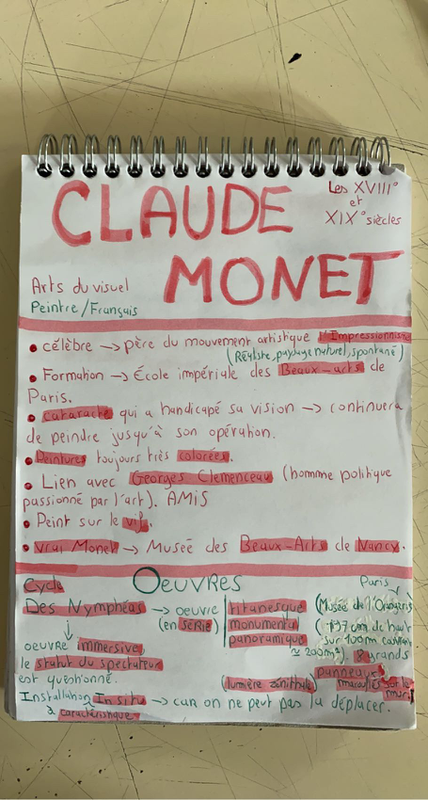 CLAUDE
Les XVIII°
et
XIX° siècles
MONET
Arts du visuel
Peintre/Français
• célèbre → père du mouvement artistique l'Impressionnisme
(Réaliste, paysage naturel, spontané)
• Formation → École impériale des Beaux-arts de
Paris.
• cataracte qui a handicapé sa vision → continuera
de peindre jusqu'à son opération.
• Peintures toujours très colorées.
• Lien avec Georges Clemenceau (homme politique
passionné par l'art). AMIS
• Peint sur le vif.
• vrai Monet → Musée des Beaux-Arts de Nancy.
Cycle
OEUVRES
Paris
Des Nymphéas → oeuvre titanesque (Musée de l'Orangerie)
(en série) monumental (197 cm de haut
panoramique sur 100m
≈ 200m²). 8 grands
panneaux
sur le
mur
↓
oeuvre immersive
le statut du spectateur
est questionné.
(lumière zénithale)
Installation In situ → car on ne peut pas la déplacer.
caractéristique